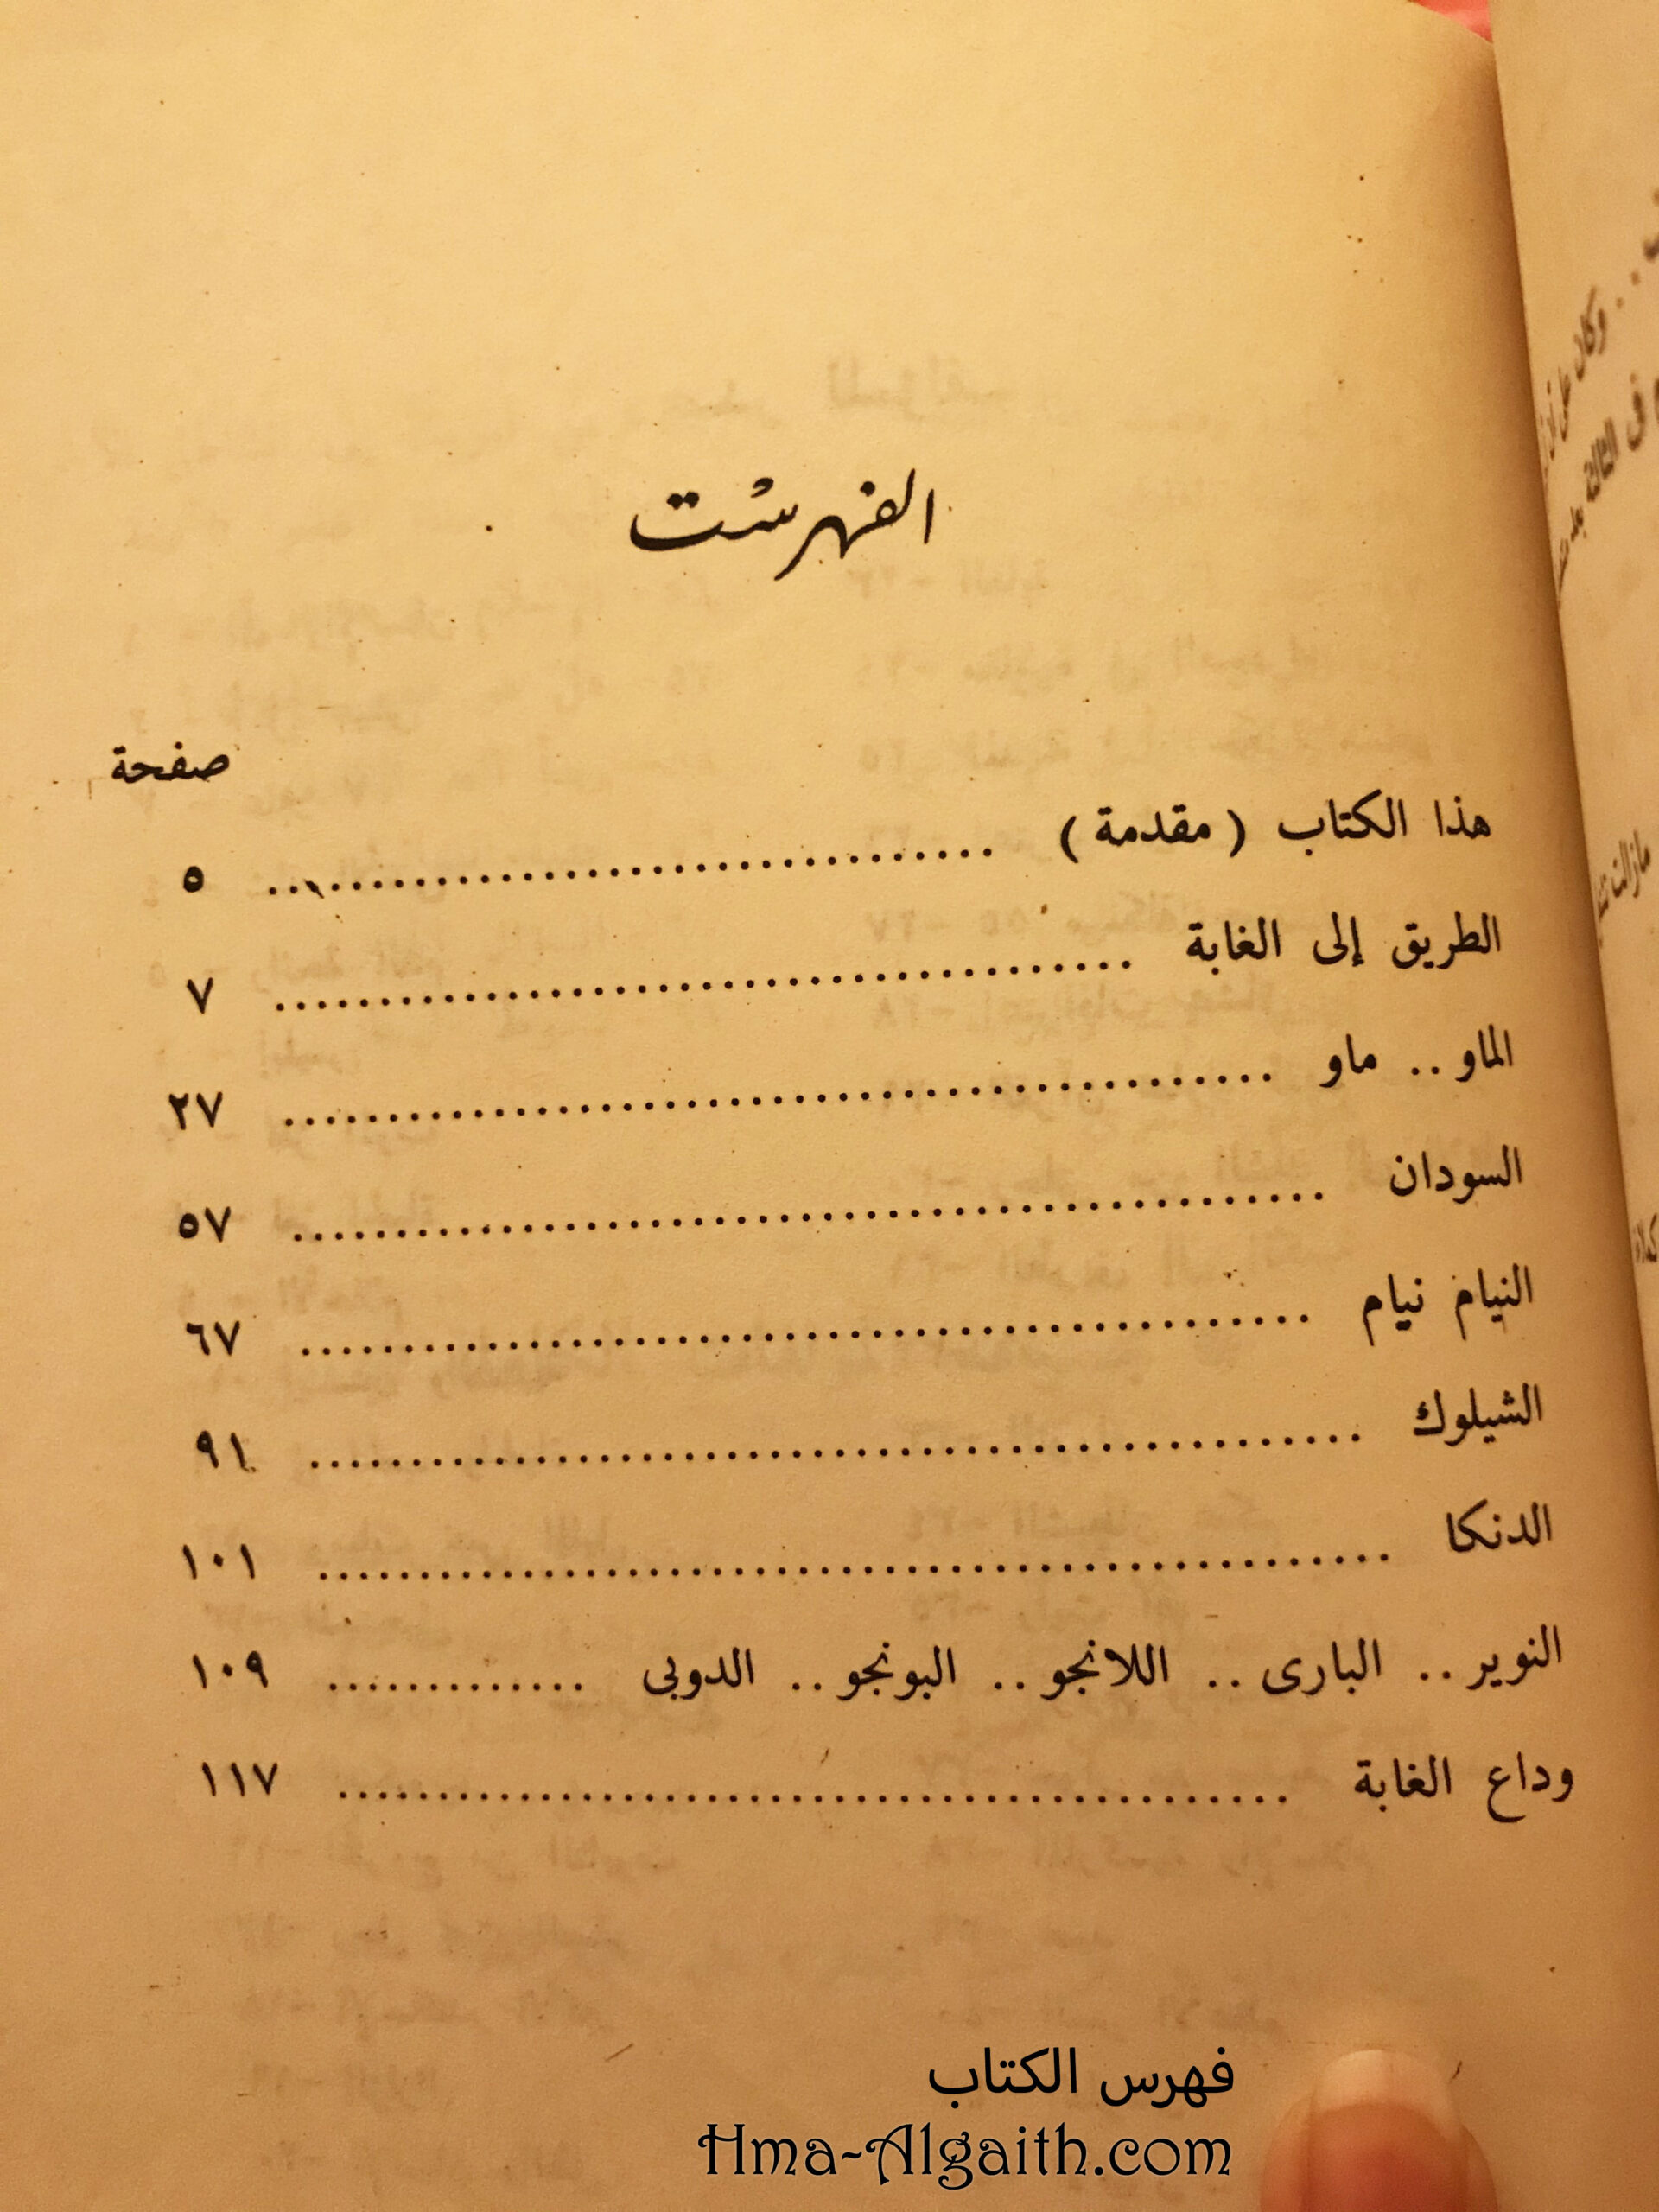 الفهرست
صفحة
هذا الكتاب ( مقدمة ) .................................. ٥
الطريق إلى الغابة ......................................... ٧
الماو .. ماو ................................................ ٢٧
السودان .................................................. ٥٧
النيام نيام ................................................. ٦٧
الشيلوك ................................................... ٩١
الدنكا .................................................... ١٠١
النوير .. البارى .. اللانجو .. البونجو .. الدوبى ............. ١٠٩
وداع الغابة .............................................. ١١٧
فهرس الكتاب
Hma-Algaith.com